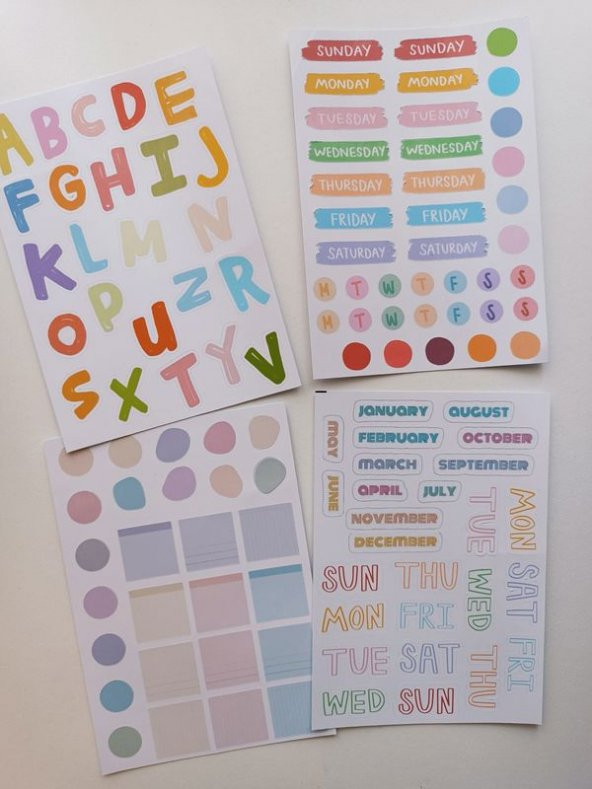 A B C D E
F G H I J
K L M N
O P U Z R
S X T Y V
SUNDAY SUNDAY
MONDAY MONDAY
TUESDAY TUESDAY
WEDNESDAY WEDNESDAY
THURSDAY THURSDAY
FRIDAY FRIDAY
SATURDAY SATURDAY
M T W T F S S
M T W T F S S
JANUARY AUGUST
MAY
FEBRUARY OCTOBER
MARCH SEPTEMBER
JUNE
APRIL JULY
NOVEMBER
DECEMBER
TUE MON
SUN THU
WED SAT
MON FRI
TUE SAT
THU FRI
WED SUN